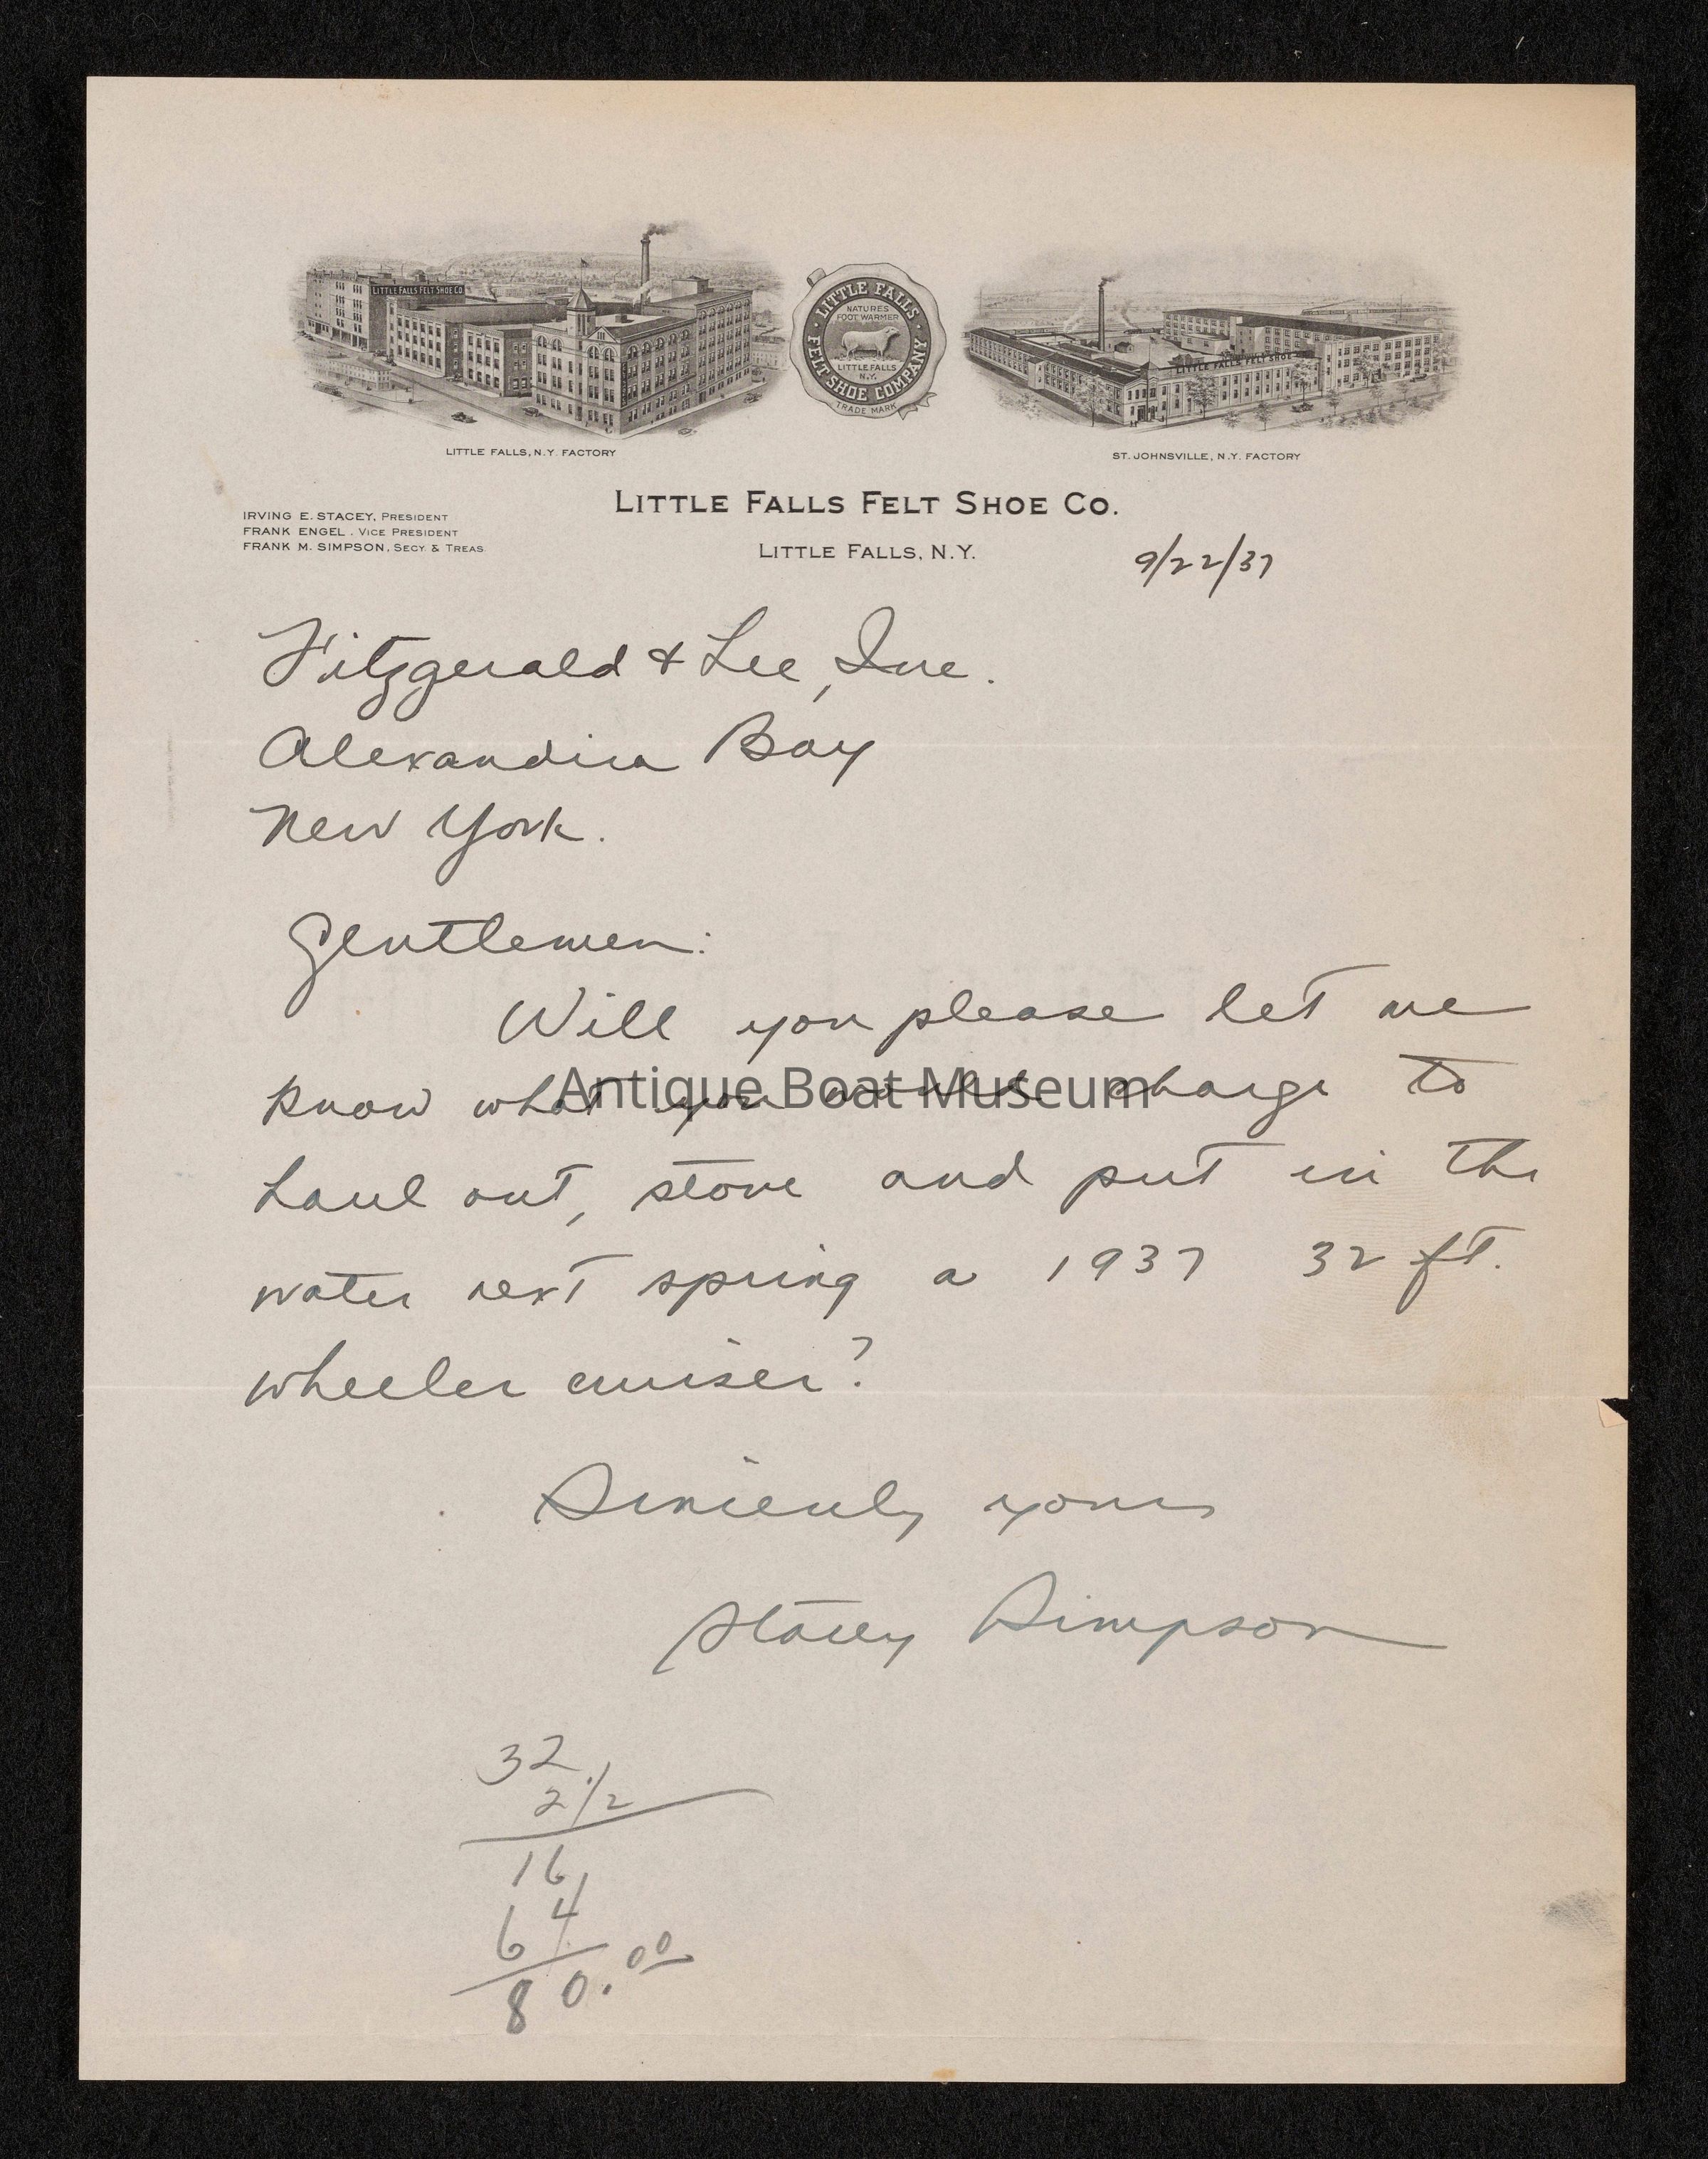 LITTLE FALLS FELT SHOE CO.
LITTLE FALLS FELT SHOE COMPANY
NATURES
FOOT WARMER
LITTLE FALLS
N.Y.
TRADE MARK
LITTLE FALLS FELT SHOE
LITTLE FALLS, N.Y. FACTORY
ST. JOHNSVILLE, N.Y. FACTORY
LITTLE FALLS FELT SHOE CO.
IRVING E. STACEY, PRESIDENT
FRANK ENGEL. VICE PRESIDENT
FRANK M. SIMPSON, SECY & TREAS
LITTLE FALLS, N.Y.
9/22/37
Fitzgerald & Lee, Inc.
Alexandria Bay
New York.
Gentlemen:
Will you please let me
know what you would charge to
haul out, store and put in the
water next spring a 1937 32 ft.
wheeler cruiser?
Antique Boat Museum
Sincerely yours
Stacey Simpson
32
2 1/2
16
64
80.00